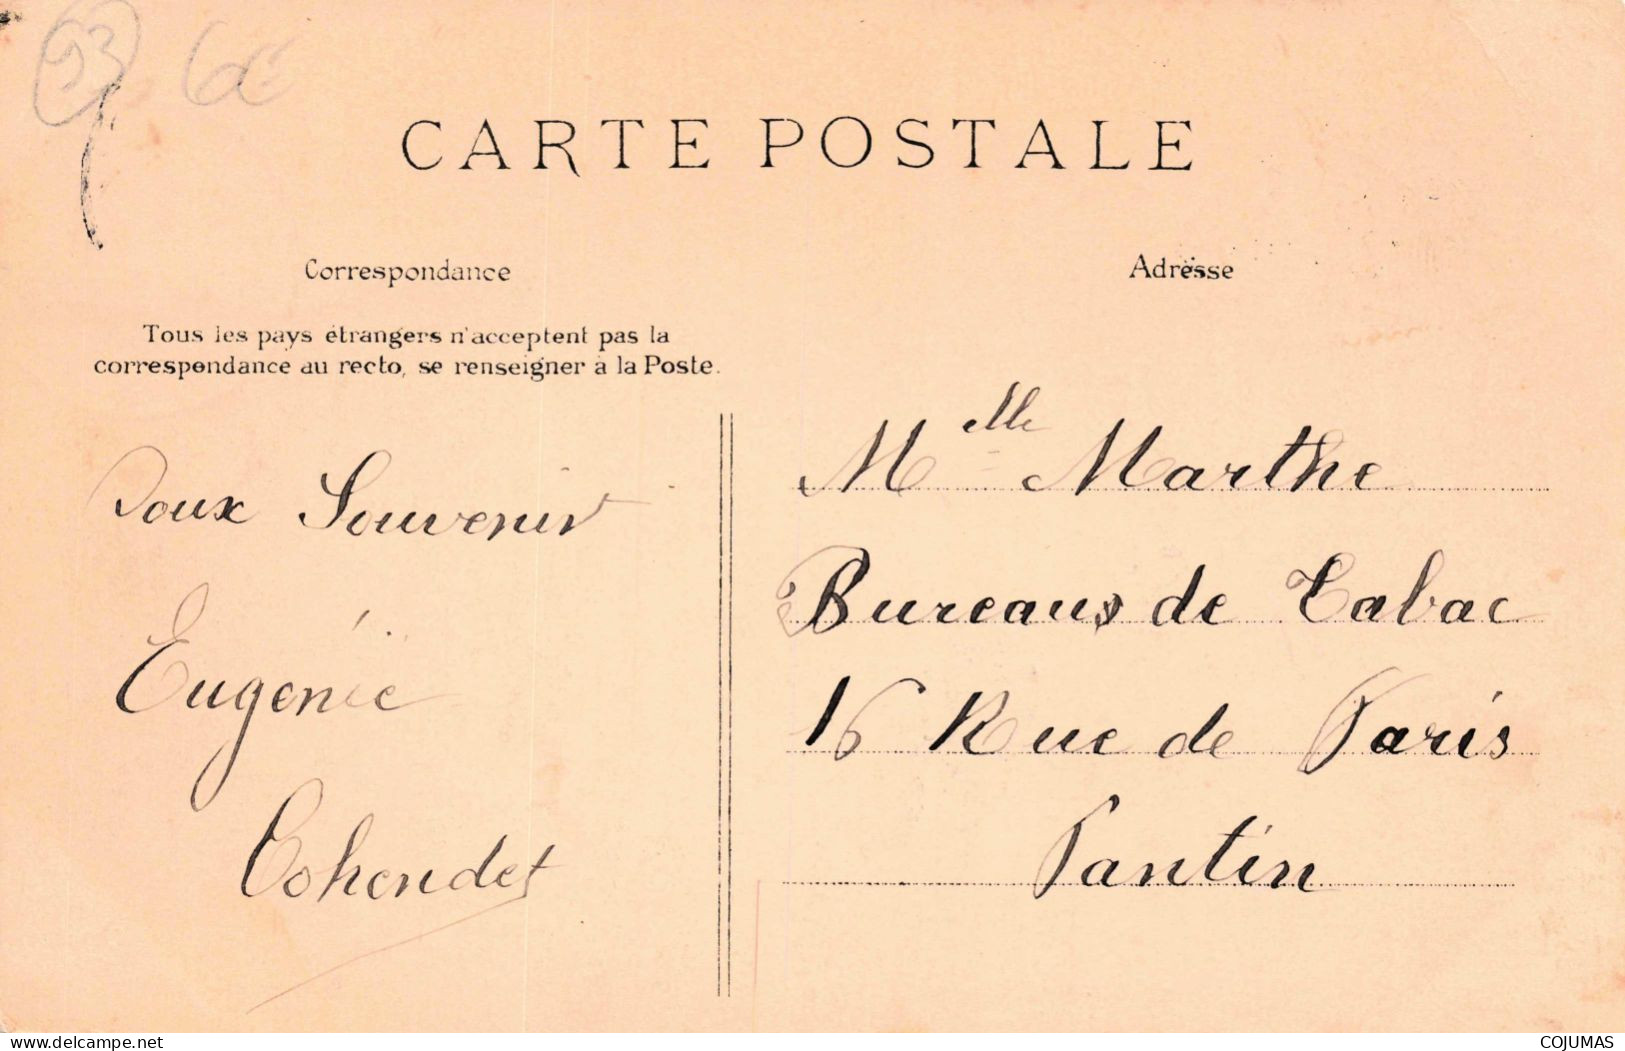 93 6€
CARTE POSTALE
Correspondance
Adresse
Tous les pays étrangers n'acceptent pas la
correspondance au recto, se renseigner à la Poste.
Doux Souvenir
Eugénie
Cohendet
Mlle Marthe
Bureaus de Tabac
16 Rue de Paris
Pantin
www.delcampe.net
COJUMAS